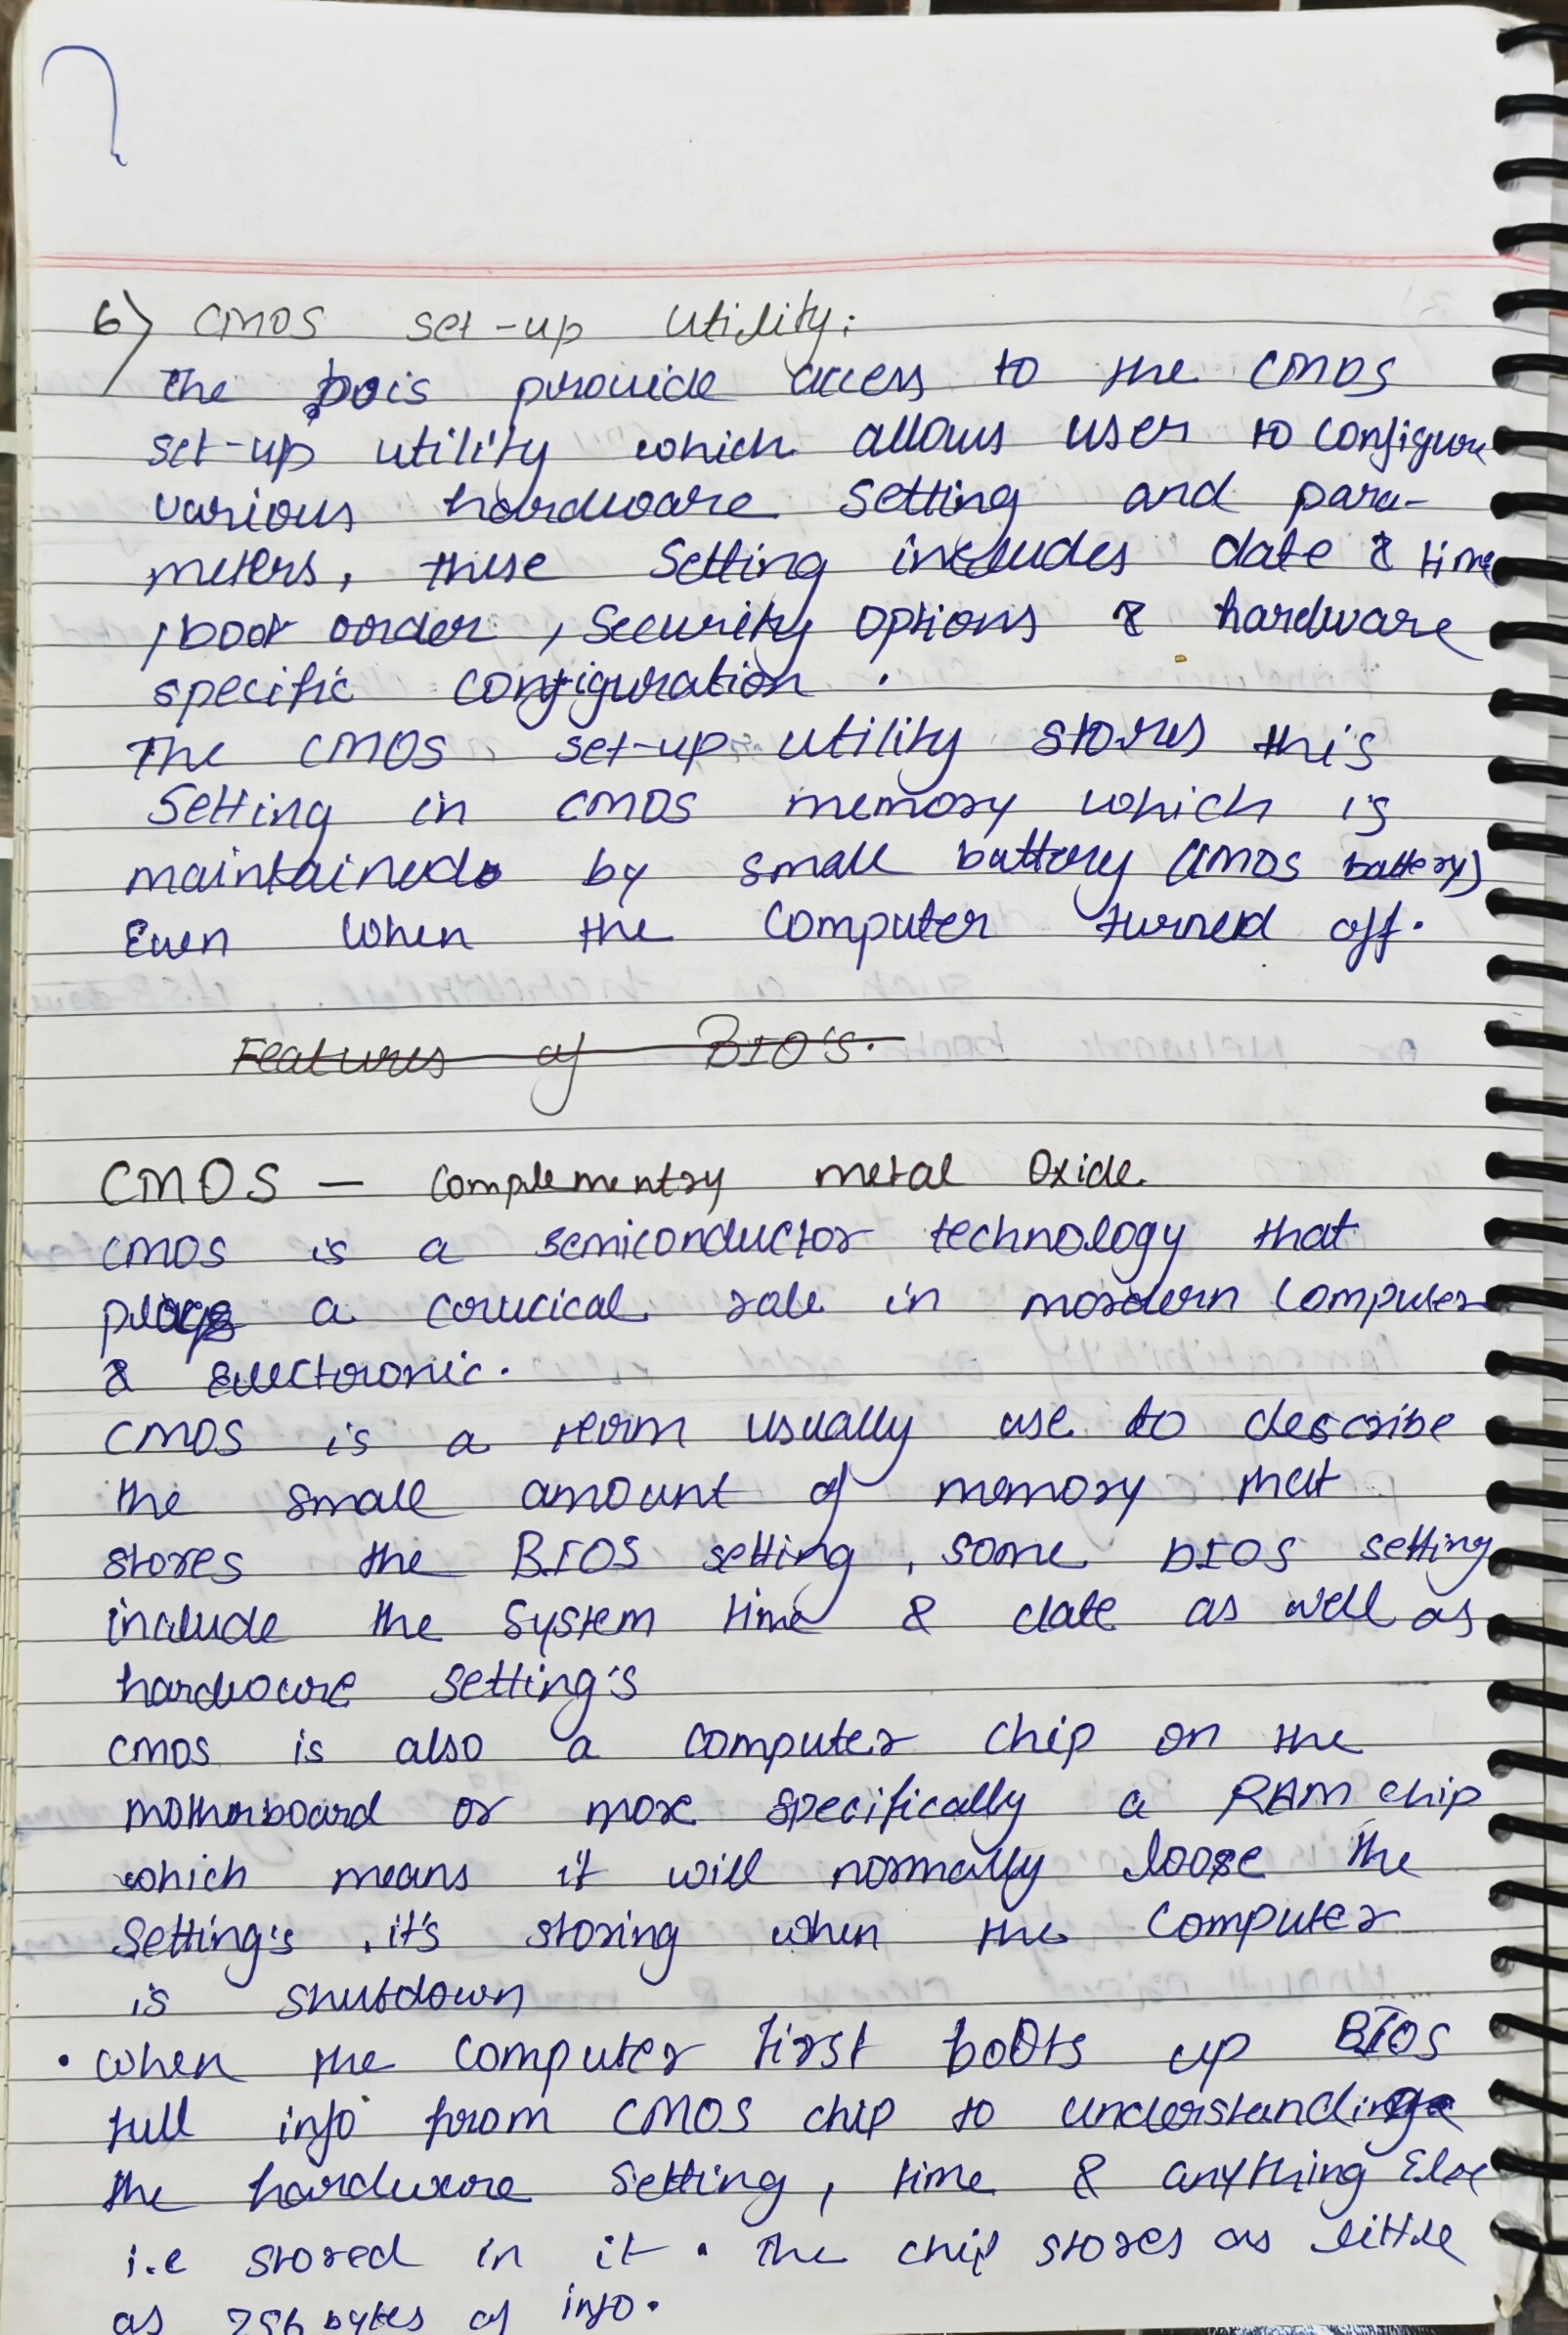 6) CMOS set-up Utility:
The bois provide access to the CMOS
set-up utility which allows user to configure
various hardware setting and para-
meters, these setting includes date & time
, boot order, Security options & hardware
specific configuration.
The CMOS set-up utility stores this
Setting in CMOS memory which is
maintained by small battory (CMOS battery)
Even when the computer turned off.
Features of BIO's.
CMOS - Complementry metal Oxide
CMOS is a semiconductor technology that
plays a corucical role in mordern computer
& electronic.
CMOS is a term usually use to describe
the small amount of memory that
stores the BIOS setting, some bIOS setting
include the system time & date as well as
hardware setting's
CMOS is also a computer chip on the
motherboard or more specifically a RAM chip
which means it will normally loose the
Setting's, it's storing when the computer
is shutdown
• when the computer first boots up BIOS
full info from CMOS chip to understanding
the hardware setting, time & anything Else
i.e stored in it. The chip stores as little
as 256 bytes of info.